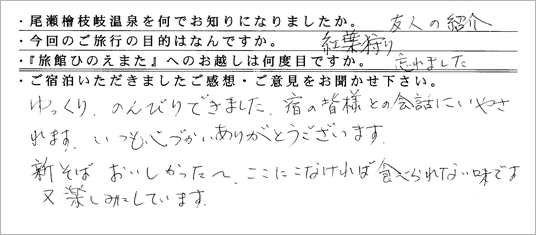 ・尾瀬檜枝岐温泉を何でお知りになりましたか。 友人の紹介
・今回のご旅行の目的はなんですか。 紅葉狩り
・『旅館ひのえまた』へのお越しは何度目ですか。 忘れました
・ご宿泊いただきましたご感想・ご意見をお聞かせ下さい。
ゆっくり、のんびりできました、宿の皆様との会話にいやさ
れます、いつも心づかいありがとうございます。
新そば おいしかった〜、ここにこなければ食べられない味です
又楽しみにしています。